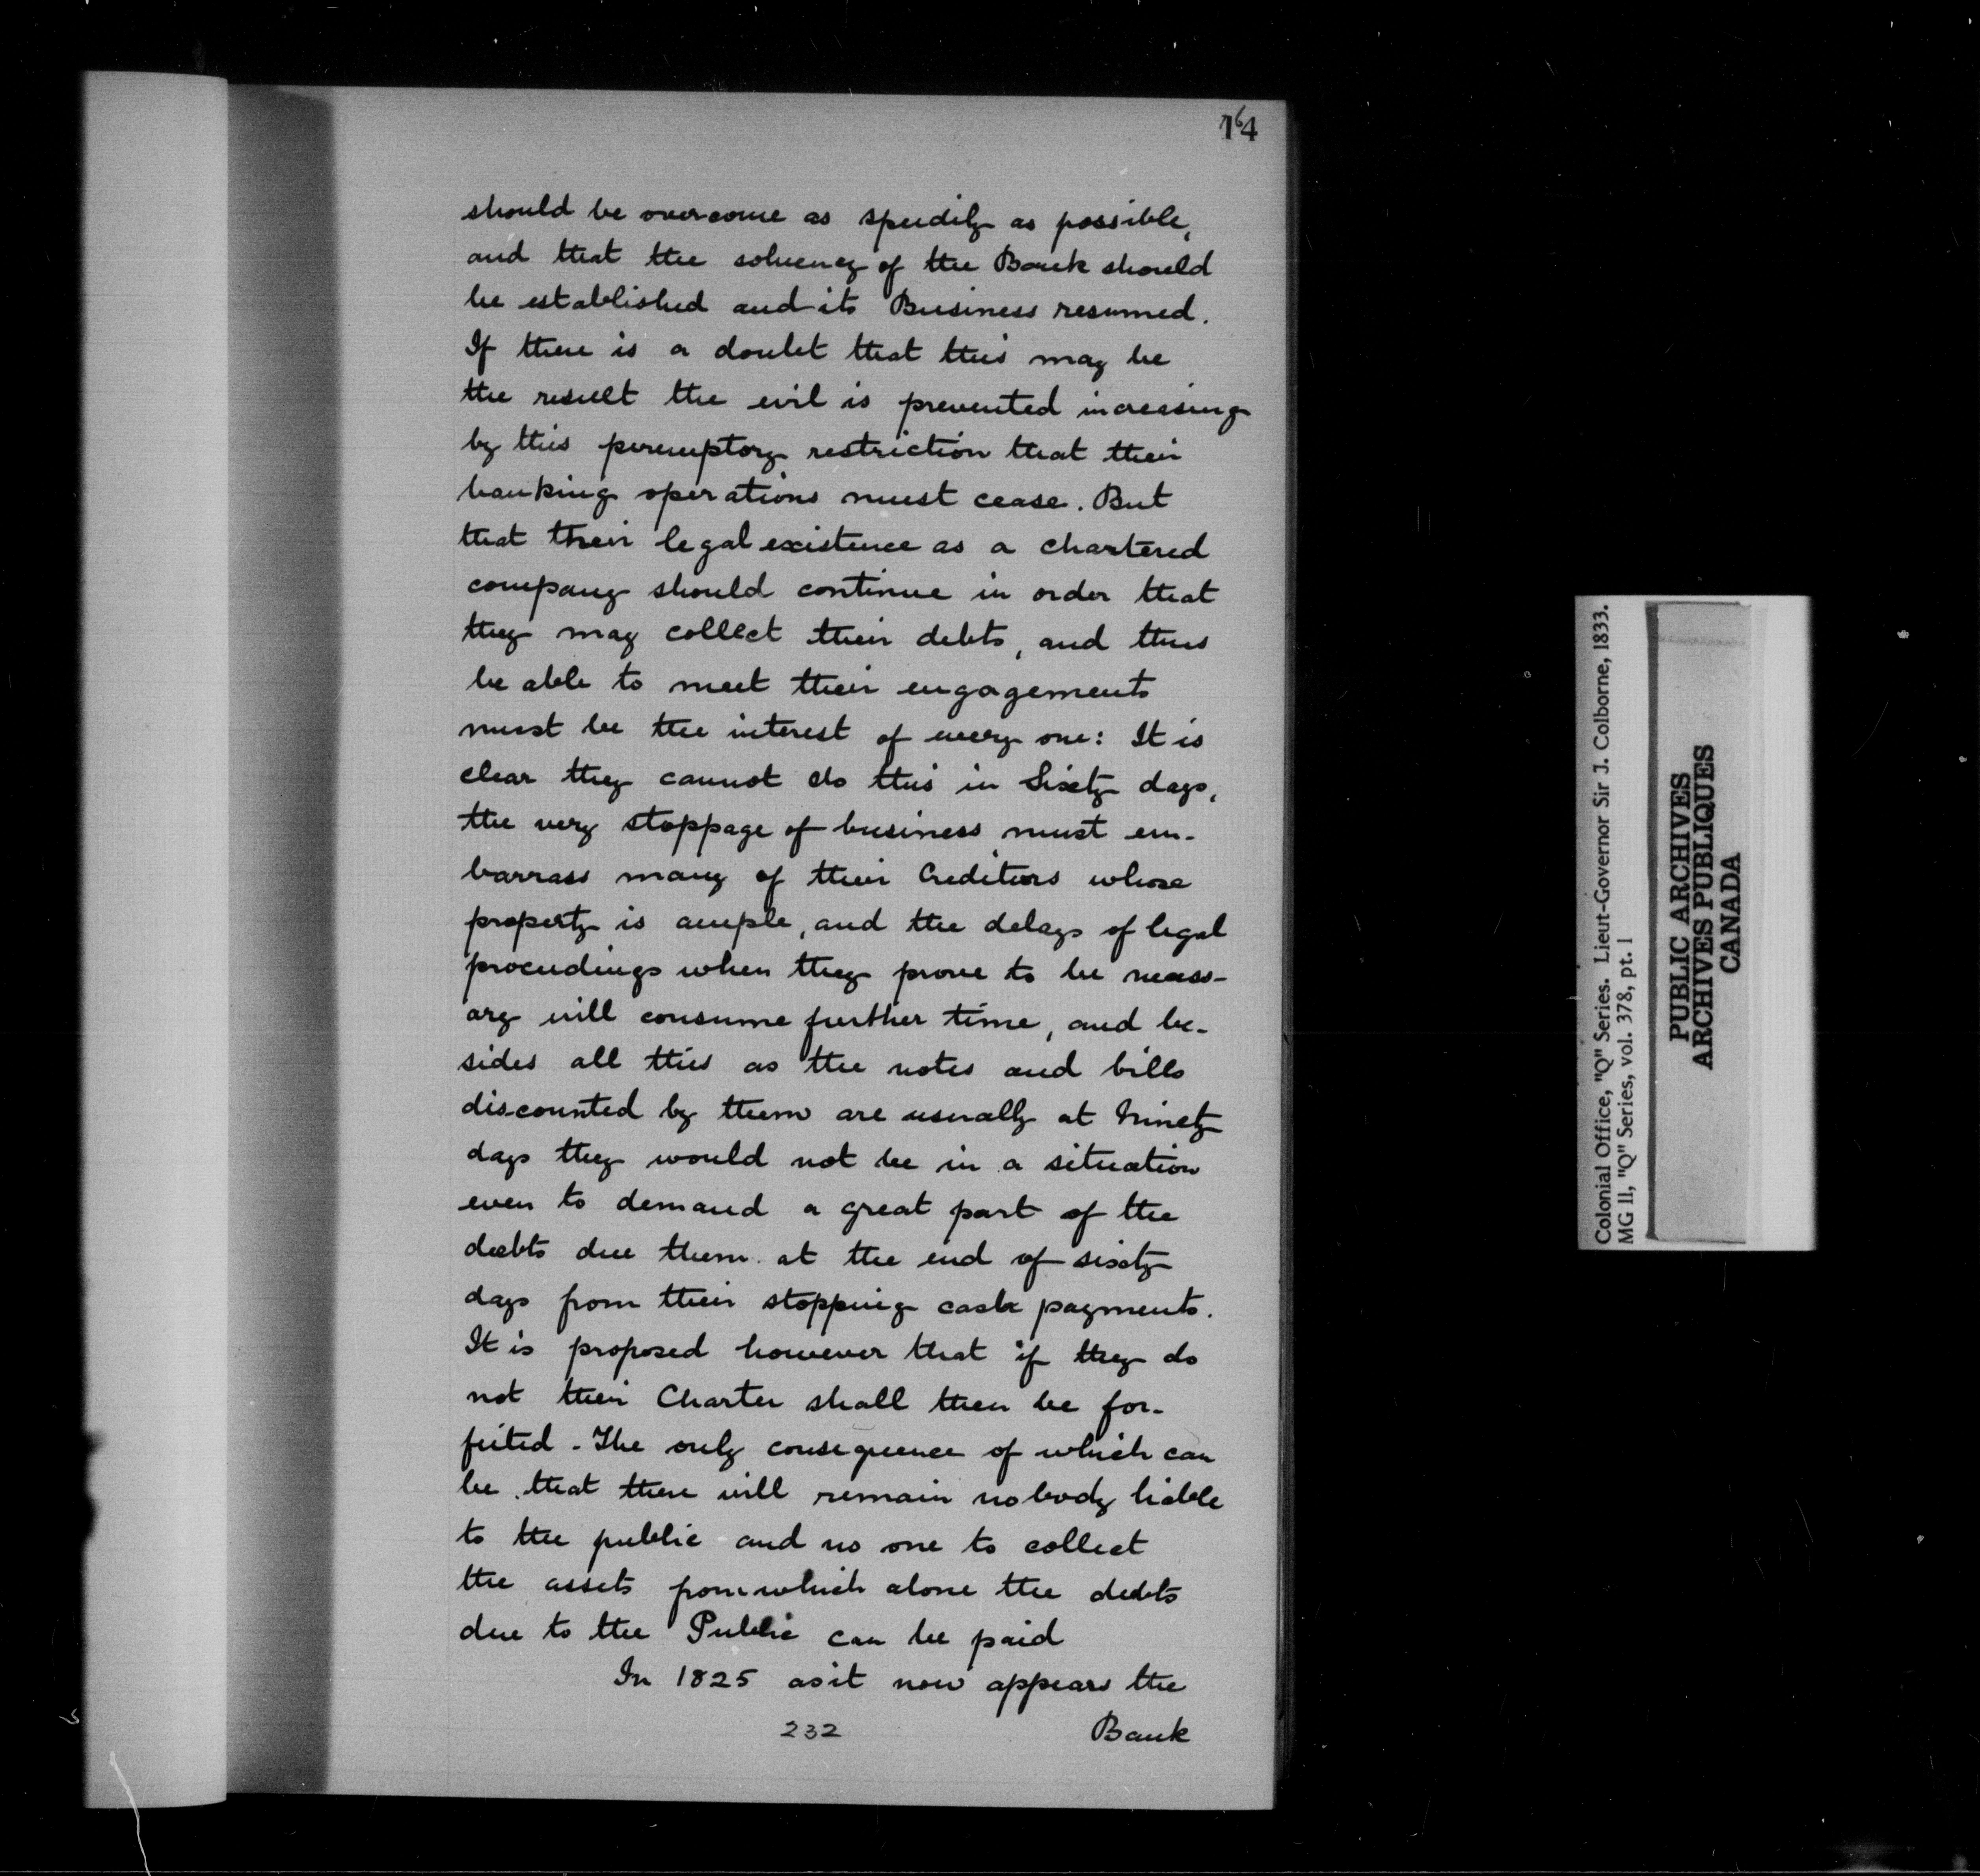 164
should be overcome as speedily as possible,
and that the solvency of the Bank should
be established and its Business resumed.
If there is a doubt that this may be
the result the evil is prevented increasing
by this peremptory restriction that their
banking operations must cease. But
that their legal existence as a chartered
company should continue in order that
they may collect their debts, and thus
be able to meet their engagements
must be the interest of every one: It is
clear they cannot do this in Sixty days,
the very stoppage of business must em-
barrass many of their Creditors whose
property is ample, and the delays of legal
proceedings when they prove to be necess-
ary will consume further time, and be-
sides all this as the notes and bills
discounted by them are usually at Ninety
days they would not be in a situation
even to demand a great part of the
debts due them at the end of sixty
days from their stopping cash payments.
It is proposed however that if they do
not their Charter shall then be for-
feited. The only consequence of which can
be that there will remain nobody liable
to the public and no one to collect
the assets from which alone the debts
due to the Public can be paid
In 1825 as it now appears the
232 Bank
Colonial Office, "Q" Series. Lieut-Governor Sir J. Colborne, 1833.
MG 11, "Q" Series, vol. 378, pt. 1
PUBLIC ARCHIVES
ARCHIVES PUBLIQUES
CANADA